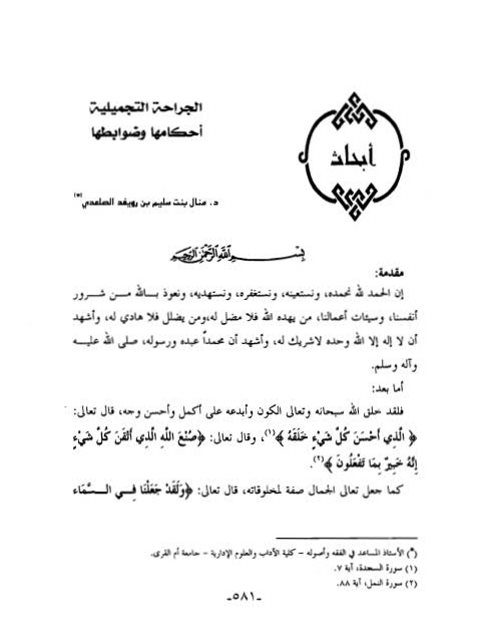 الجراحة التجميلية
أحكامها وضوابطها
أبحاث
د. منال بنت سليم بن رويفد الصاعدي(*)
بِسْمِ اللَّهِ الرَّحْمَنِ الرَّحِيمِ
مقدمة:
إن الحمد لله نحمده، ونستعينه، ونستغفره، ونستهديه، ونعوذ بـالله مـن شـرور
أنفسنا، وسيئات أعمالنا، من يهده الله فلا مضل له،ومن يضلل فلا هادي له، وأشهد
أن لا إله إلا الله وحده لاشريك له، وأشهد أن محمداً عبده ورسوله، صلى الله عليـه
وآله وسلم.
أما بعد:
فلقد خلق الله سبحانه وتعالى الكون وأبدعه على أكمل وأحسن وجه، قال تعالى:
﴿ الَّذِي أَحْسَنَ كُلَّ شَيْءٍ خَلَقَهُ ﴾(١)، وقال تعالى: ﴿صُنْعَ اللَّهِ الَّذِي أَتْقَنَ كُلَّ شَيْءٍ
إِنَّهُ خَبِيرٌ بِمَا تَفْعَلُونَ ﴾(٢).
كما جعل تعالى الجمال صفة لمخلوقاته، قال تعالى: ﴿وَلَقَدْ جَعَلْنَا فِـي السَّـمَاء
(*) الأستاذ المساعد في الفقه وأصوله – كلية الآداب والعلوم الإدارية – جامعة أم القرى.
(١) سورة السجدة، آية ٧.
(٢) سورة النمل، آية ٨٨.
-٥٨١-